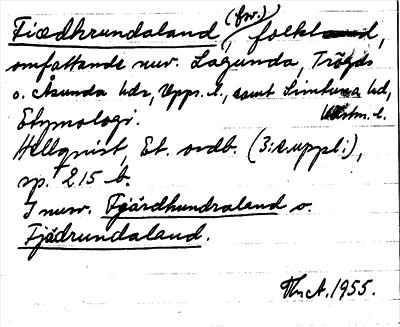 Fiædhrundaland, (fsv.) folkland,
omfattande nuv. Lagunda, Trögds
o. Åsunda hdr, Upps. l., samt Simtuna hd,
Västm. l.
Etymologi.
Hellquist, Et. ordb. (3:e uppl.),
sp. 215 b.
I nusv. Fjärdhundraland o.
Fjädrundaland.
Th. A. 1955.